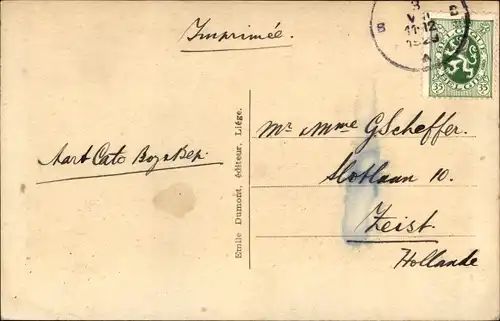 Imprimée.
8
VII
11-12
1929
B B
A
BELGIQUE
BELGIË
35 35
Mr Mme G Scheffer.
Slotlaan 10.
Zeist.
Hollande
Aart Cato
Emile Dumont, éditeur, Liége.